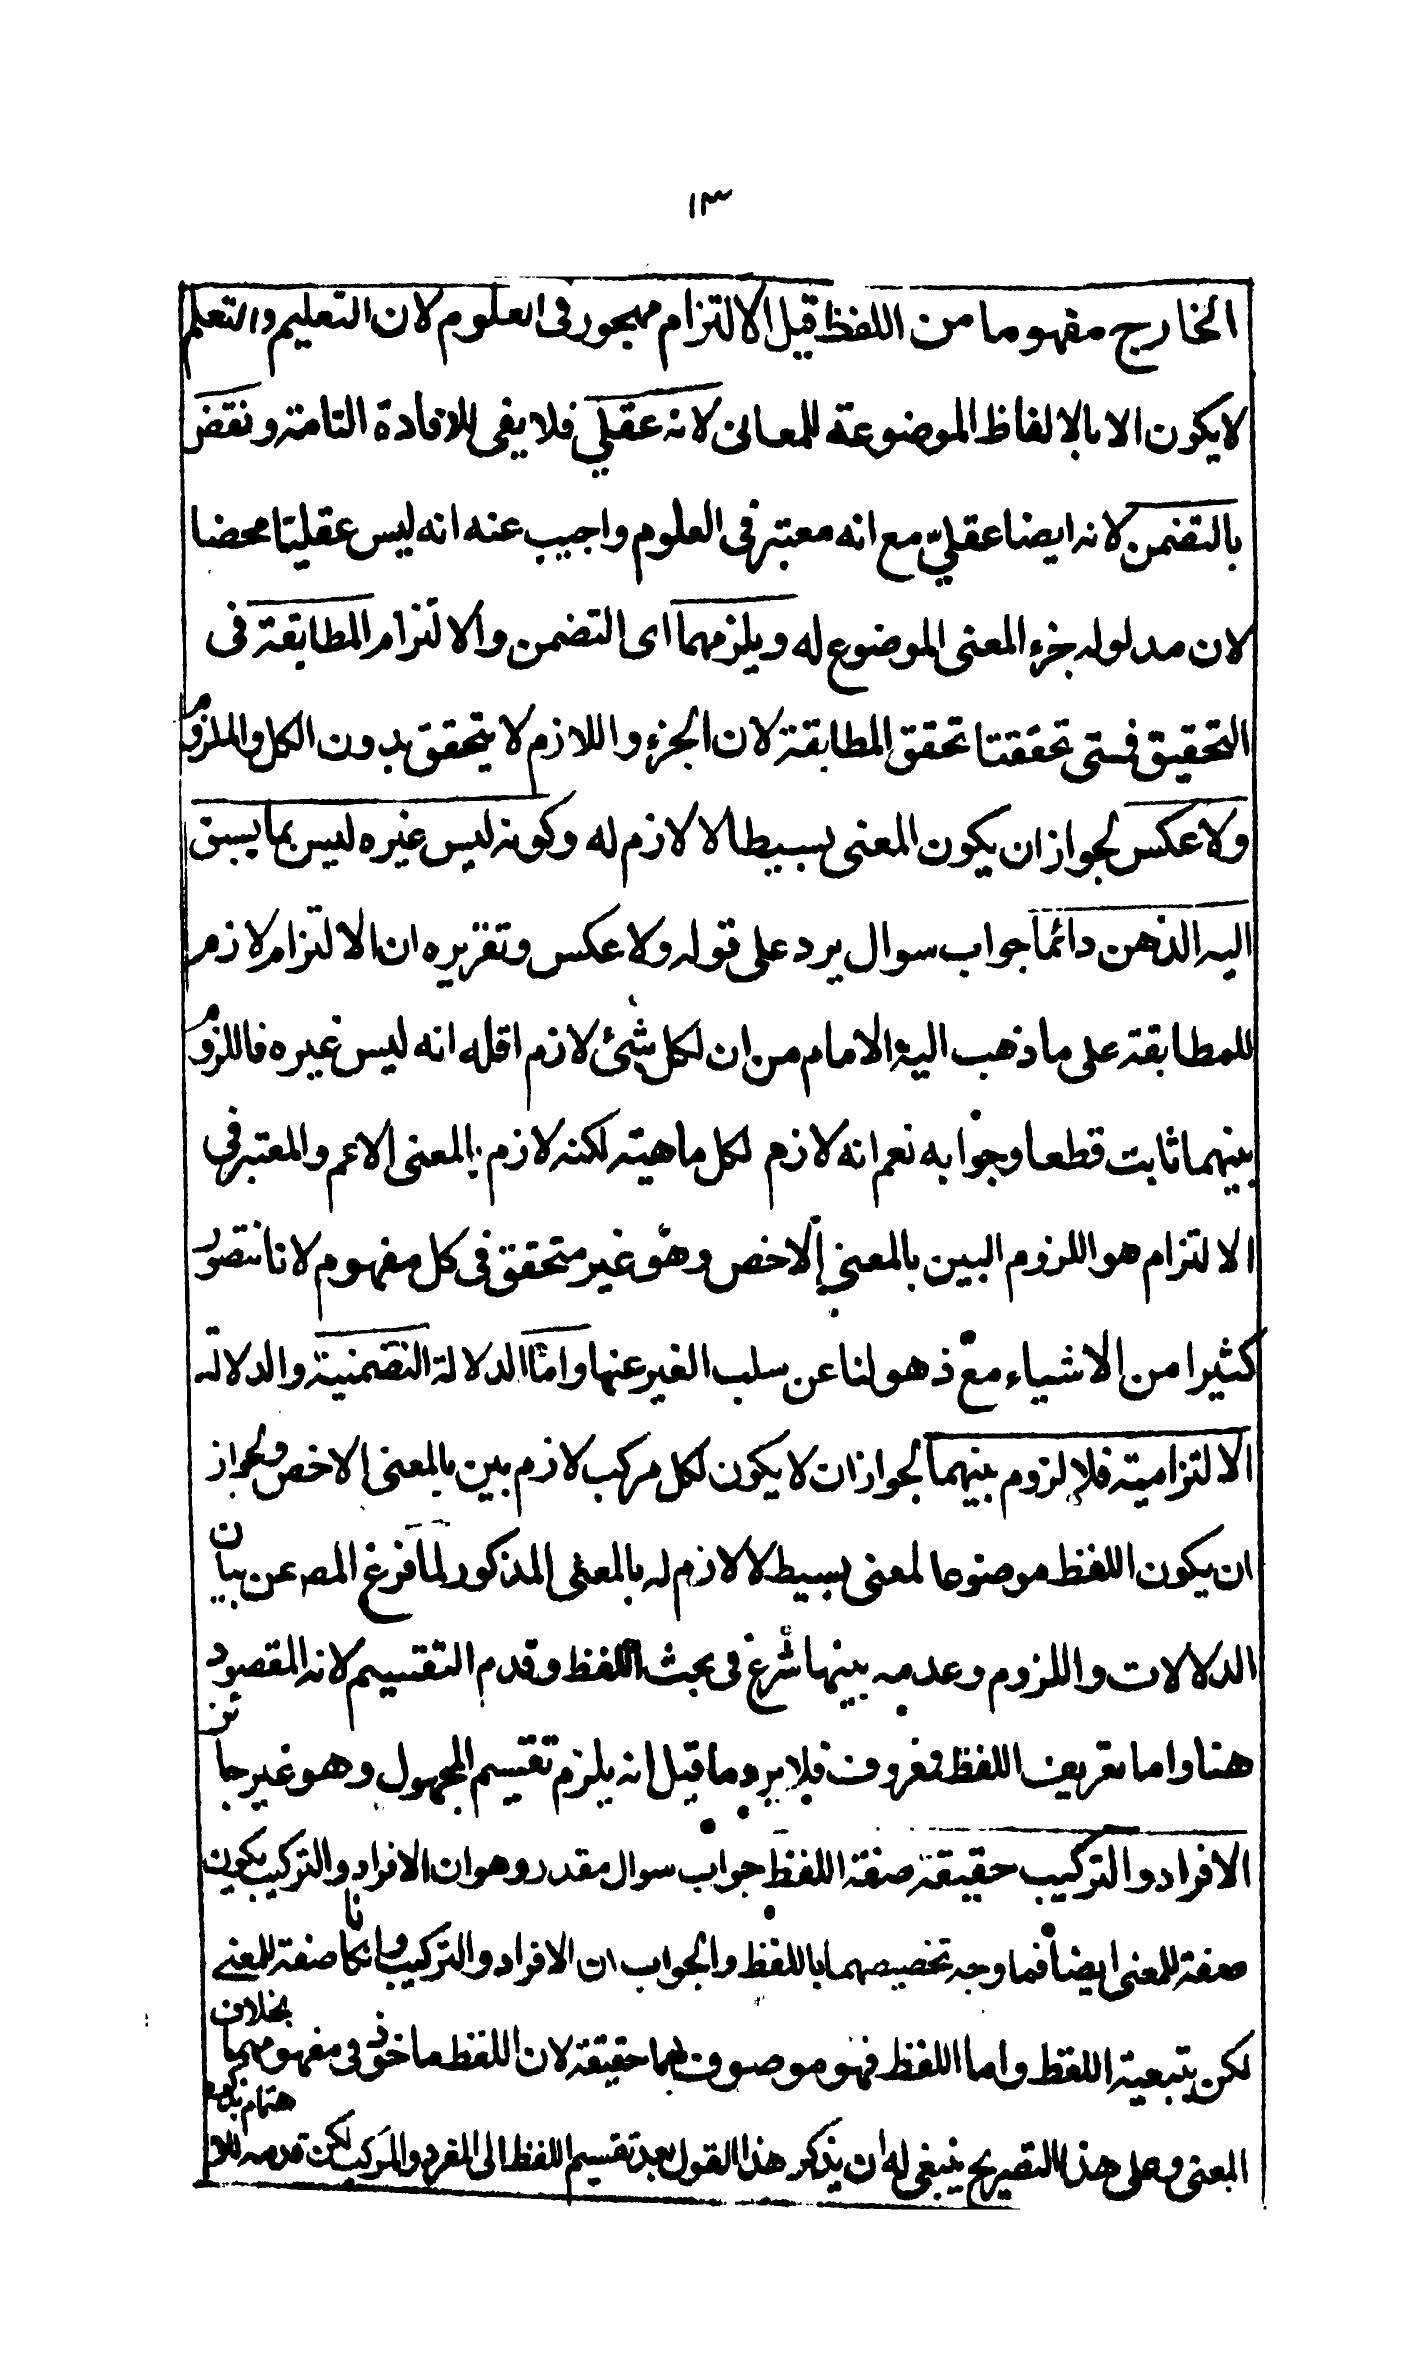 ١٣
الخارج مفهوما من اللفظ قيل الالتزام مهجور فى العلوم لان التعليم والتعلم
لايكون الا بالالفاظ الموضوعة للمعانى لانه عقلي فلا يفى للافادة التامة ونقض
بالتضمن لانه ايضا عقليّ مع انه معتبر فى العلوم واجيب عنه انه ليس عقليّا محضا
لان مدلوله جزء المعنى الموضوع له ويلزمهما اى التضمن والالتزام المطابقة فى
التحقيق فمتى تحققتا تحقق المطابقة لان الجزء واللازم لا يتحقق بدون الكل والملزوم
ولا عكس لجواز ان يكون المعنى بسيطا لا لازم له وكونه ليس غيره ليس بما يسبق
اليه الذهن دائما جواب سوال يرد على قوله ولا عكس وتقريره ان الالتزام لازم
للمطابقة على ما ذهب اليه الامام من ان لكل شئ لازم اقله انه ليس غيره فاللزوم
بينهما ثابت قطعا وجوابه نعم انه لازم لكل ماهية لكنه لازم بالمعنى الاعم والمعتبر فى
الالتزام هو اللزوم البين بالمعنى الاخص وهو غير متحقق فى كل مفهوم لانا نتصور
كثيرا من الاشياء مع ذهولنا عن سلب الغير عنها واما الدلالة التضمنية والدلالة
الالتزامية فلا لزوم بينهما لجواز ان لا يكون لكل مركب لازم بين بالمعنى الاخص ولجواز
ان يكون اللفظ موضوعا لمعنى بسيط لا لازم له بالمعنى المذكور لما فرغ المصـ عن بيان
الدلالات واللزوم وعدمه بينها شرع فى بحث اللفظ وقدم التقسيم لانه المقصود
هنا واما تعريف اللفظ فمعروف فلا يرد ما قيل انه يلزم تقسيم المجهول وهو غير جائز
الافراد والتركيب حقيقة صفة اللفظ جواب سوال مقدر وهو ان الافراد والتركيب يكون
صفة للمعنى ايضا فما وجه تخصيصهما باللفظ والجواب ان الافراد والتركيب وان كانا صفة للمعنى
لكن بتبعية اللفظ واما اللفظ فهو موصوف بهما حقيقة لان اللفظ ماخوذ فى مفهومهما بخلاف
المعنى وعلى هذا التصريح ينبغى له ان يذكر هذا القول بعد تقسيم اللفظ الى المفرد والمركب لكن قدمه للاهتمام